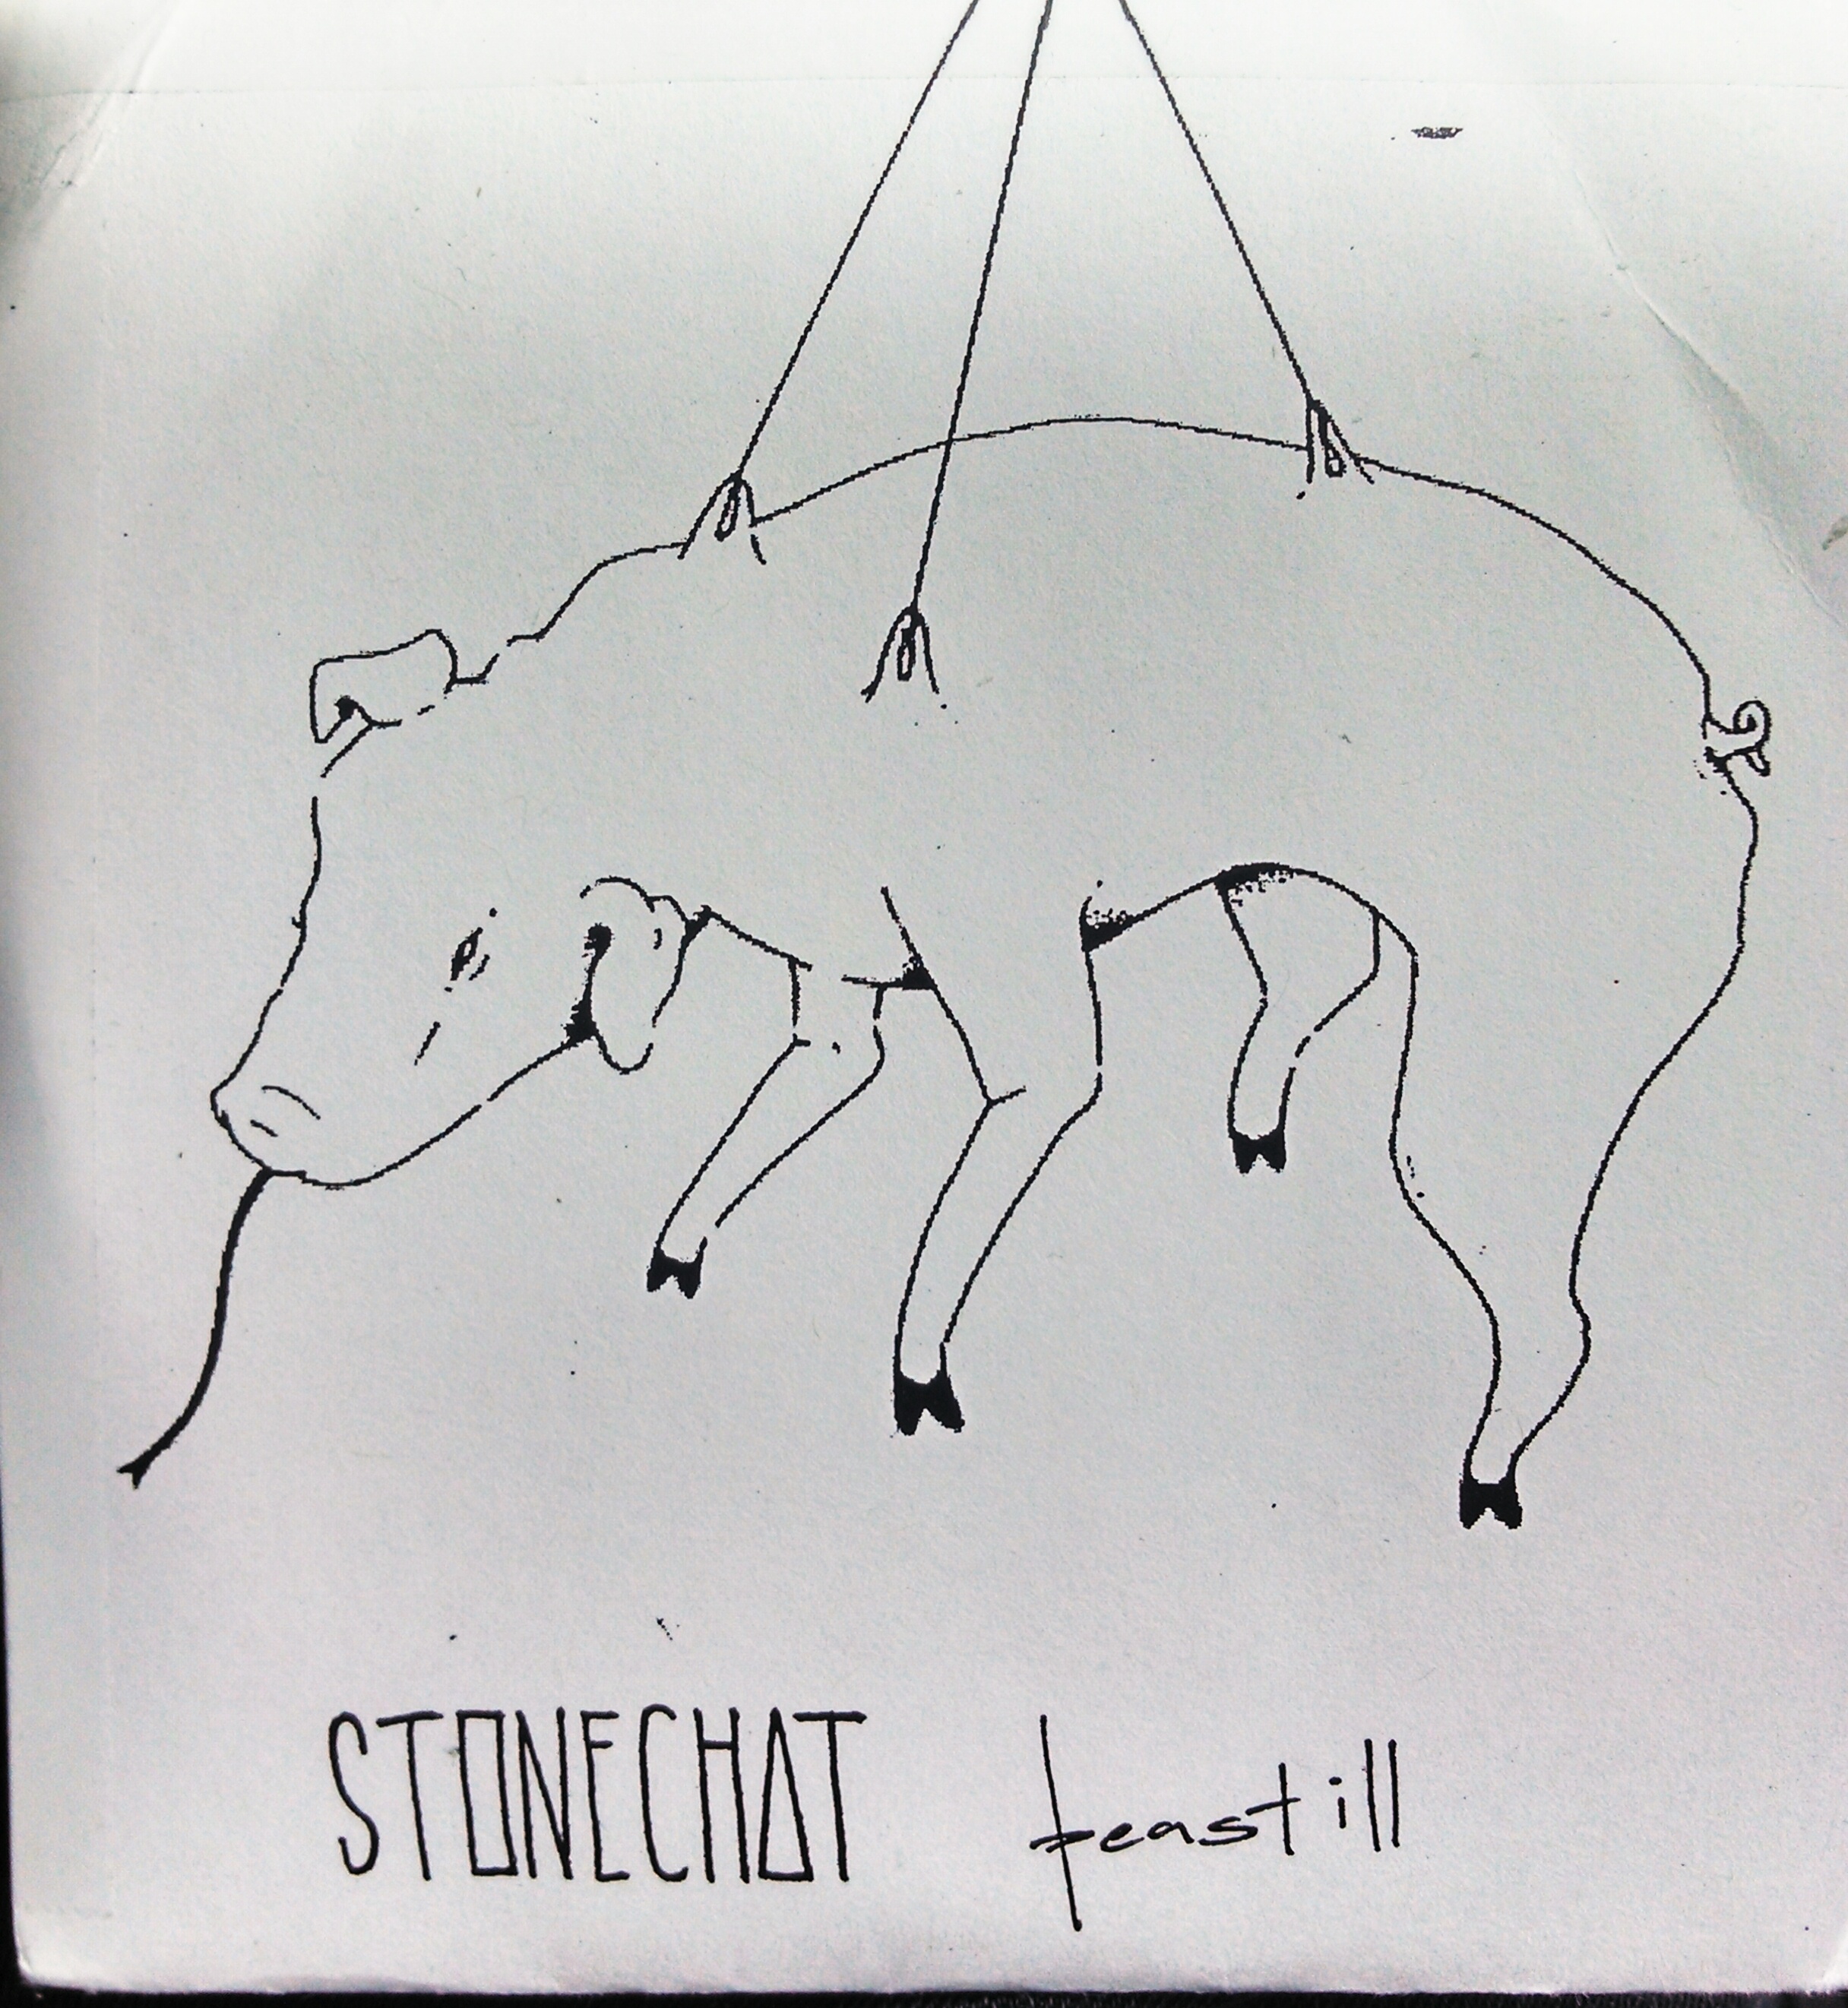 STONECHAT feastill